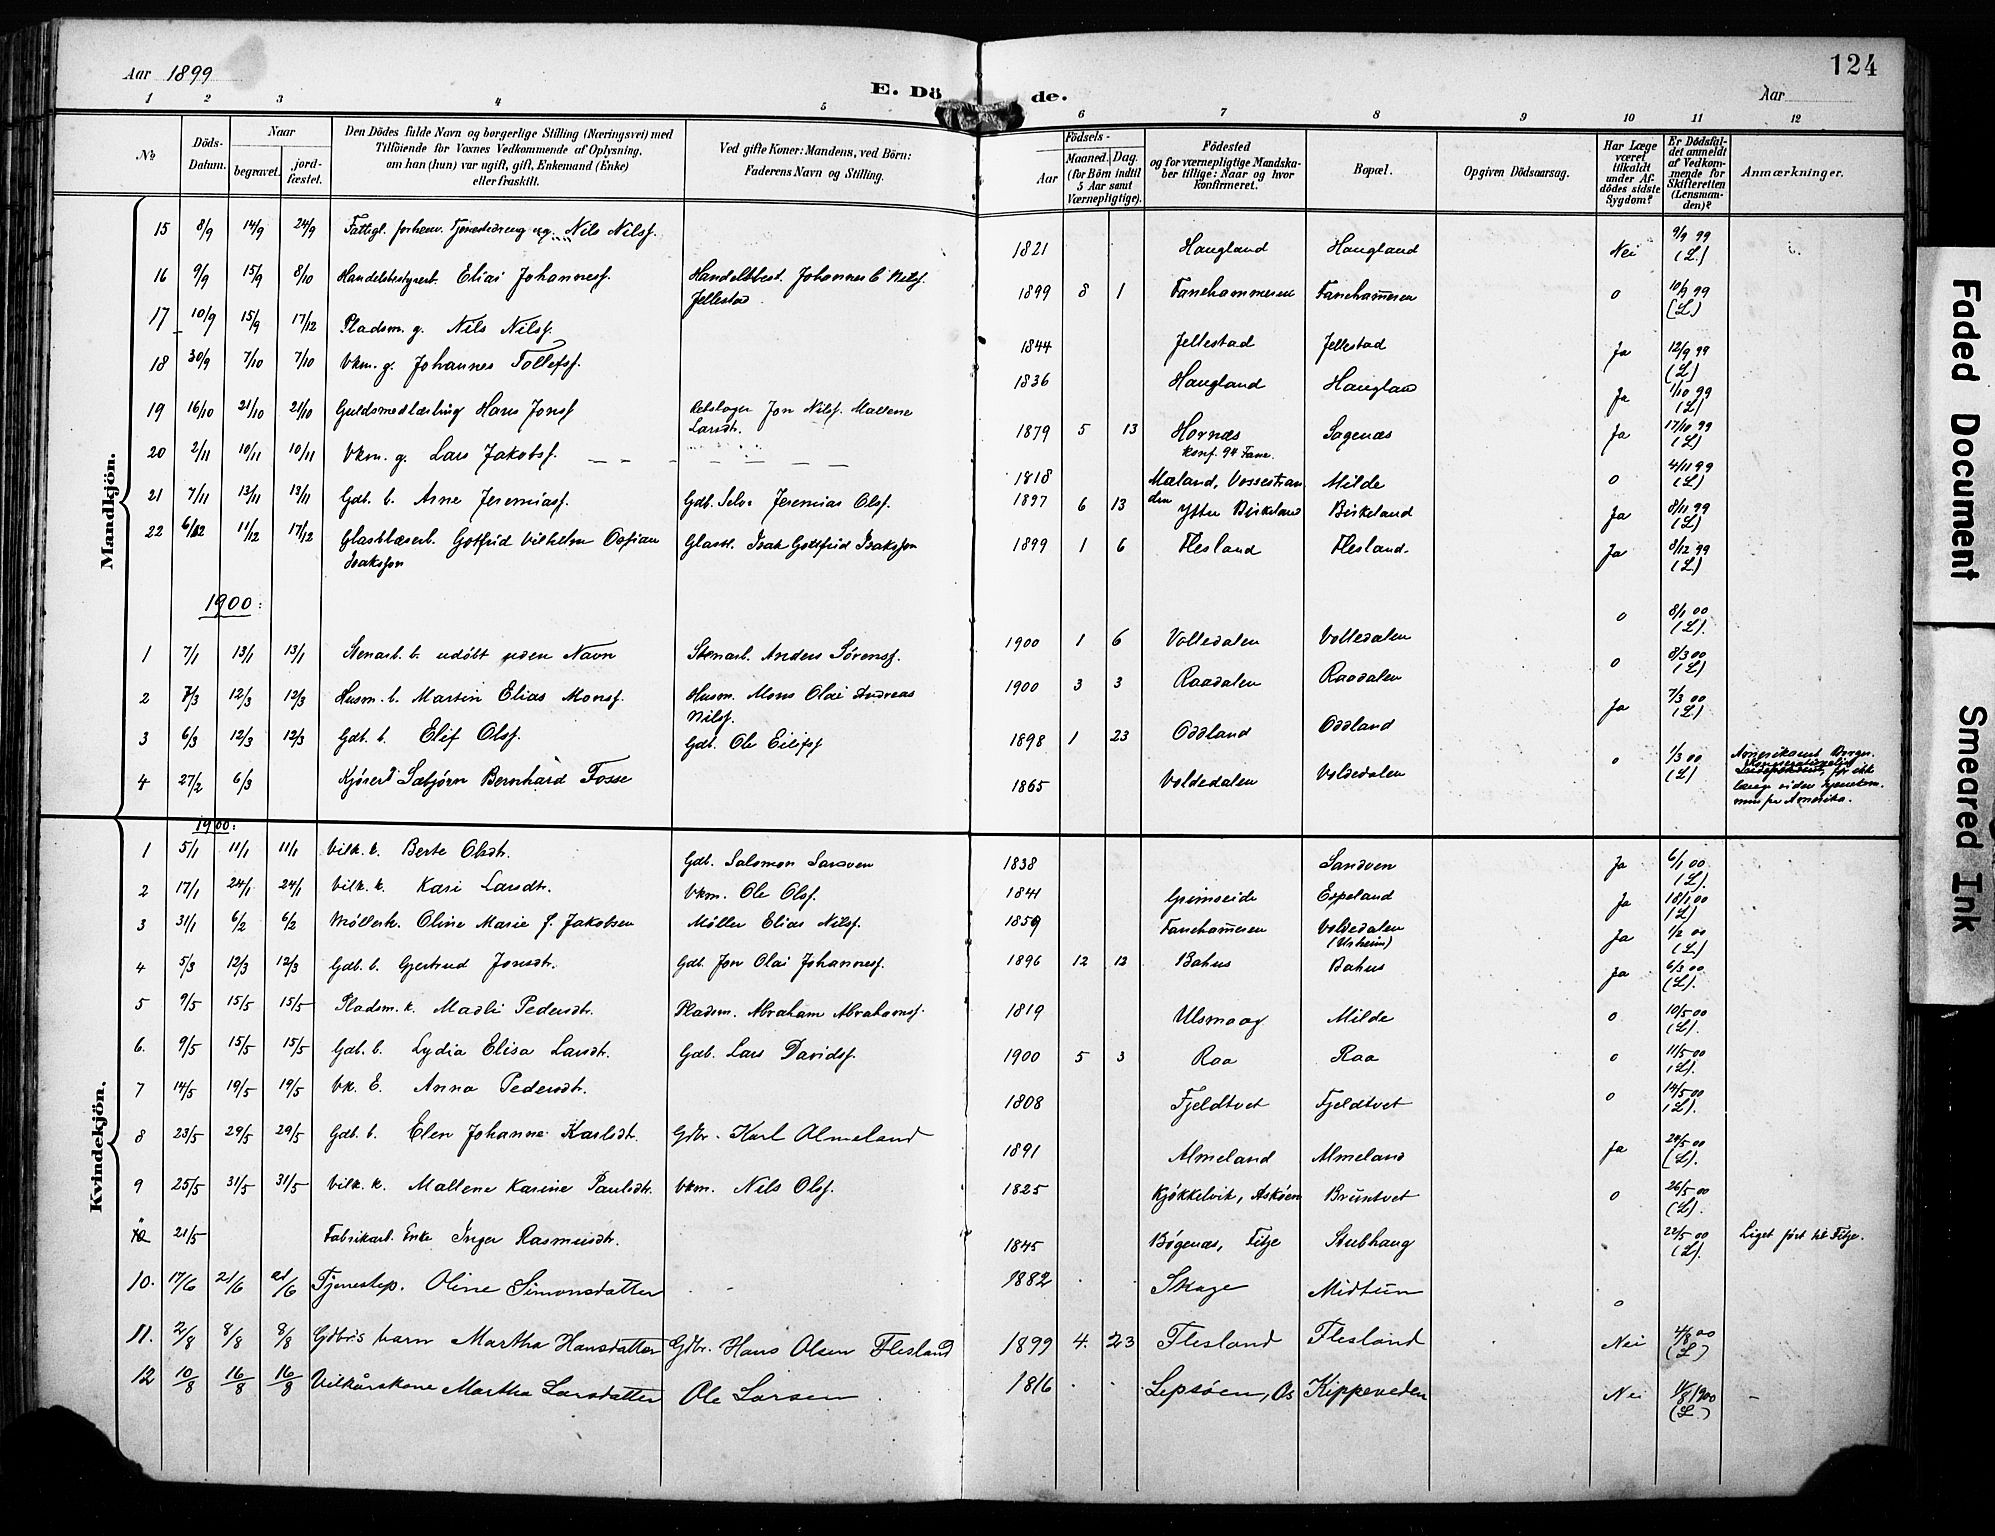 Aar 1899
E. Döde.
Aar
124
1 2 3 4 5 6 7 8 9 10 11 12
No
Döds-Datum.
Naar
begravet.
jordfæstet.
Den Dödes fulde Navn og borgerlige Stilling (Næringsvei) med Tilföiende for Voxnes Vedkommende af Oplysning, om han (hun) var ugift, gift, Enkemand (Enke) eller fraskilt.
Ved gifte Koner: Mandens, ved Börn: Faderens Navn og Stilling.
Födsels-
Aar
Maaned. Dag.
(for Börn indtil 5 Aar samt Værnepligtige).
Födested og for værnepligtige Mandskaber tillige: Naar og hvor konfirmeret.
Bopæl.
Opgiven Dödsaarsag.
Har Læge været tilkaldt under Afdödes sidste Sygdom?
Er Dödsfaldet anmeldt af Vedkommende for Skifteretten (Lensmanden)?
Anmærkninger.
Mandkjön.
15 8/9 14/9 24/9 Fattigl. forhenv. ug. Nils Nilsf. 1821 Haugland Haugland Nei 9/9 99 (L.)
16 9/9 15/9 8/10 Handelsbestyrerb. Elias Johannesf. Handelsbest. Johannes Nilsf. Jellestad 1899 8 1 Fanehammeren Fanehammeren o 10/9 99 (L)
17 10/9 15/9 17/12 Pladsm. g. Nils Nilsf. 1844 Jellestad Jellestad Ja 12/9 99 (L)
18 30/9 7/10 7/10 Vkm. g. Johannes Tollefsf. 1836 Haugland Haugland Ja 1/10 99 (L)
19 16/10 21/10 21/10 Guldsmedlærling Hans Jonsf. Jon Nilsf. Mallene Larsdt. 1879 5 13 Hornæs konf. 94 Fane. Sagenæs Ja 17/10 99 (L)
20 2/11 10/11 10/11 Vkm. g. Lars Jakobsf. 1818 Mæland, Vossestranden Milde o 4/11 99 (L)
21 7/11 13/11 13/11 Gdb. b. Arne Jeremiasf. Gdb. Selv. Jeremias Olsf. 1897 6 13 Ytter Birkeland Birkeland Ja 8/11 99 (L)
22 6/12 11/12 17/12 Glasblæserb. Gotfrid Vilhelm Ossian Isaksson Glasbl. Isak Gottfrid Isaksson 1899 1 6 Flesland Flesland. Ja 8/12 99 (L)
1900:
1 7/1 13/1 13/1 Stenarb. b. udöbt uden Navn Stenarb. Anders Sörensf. 1900 1 6 Volledalen Volledalen o 8/1 00 (L).
2 7/3 12/3 12/3 Husm. b. Martin Elias Monsf. Husm. Mons Olai Andreas Nilsf. 1900 3 3 Raadalen Raadalen o 8/3 00 (L)
3 6/3 12/3 12/3 Gdb. b. Elif Olsf. Gdb. Ole Eilifsf 1898 1 23 Oddland Oddland Ja 7/3 00 (L)
4 27/2 6/3 Sæbjörn Bernhard Fosse 1865 Voldedalen Voldedalen o 1/3 00 (L) Amerikansk Borger. for ikke længe siden hjemkommen fra Amerika.
Kvindekjön.
1900:
1 5/1 11/1 11/1 Vilk. k. Berte Olsdt. Gdb. Salomon Sandven 1838 Sandven Ja 6/1 00 (L).
2 17/1 24/1 24/1 Vilk. k. Kari Larsdt. Vkm. Ole Olsf. 1841 Grimseide Espeland Ja 18/1 00 (L)
3 31/1 6/2 6/2 Möllerk. Oline Marie f. Jakobsen Möller Elias Nilsf. 1859 Fanehammeren Voldedalen (Usheim) Ja 1/2 00 (L)
4 5/3 12/3 12/3 Gdb. b. Gjertrud Jonsdt. Gdb. Jon Olai Johannesf. 1896 12 12 Bahus Bahus Ja 6/3 00 (L).
5 9/5 15/5 15/5 Pladsm. k. Madli Pedersdt. Pladsm. Abraham Abrahamsf. 1819 Ulsmaag Milde o 10/5 00 (L).
6. 9/5 15/5 15/5 Gdb. b. Lydia Elisa Larsdt. Gdb. Lars Davidsf. 1900 5 3 Raa Raa o 11/5 00 (L).
7 14/5 19/5 19/5 Vk. E. Anna Pedersdt. 1808 Fjeldtvet Fjeldtvet o 14/5 00 (L).
8 23/5 29/5 29/5 Gdb. b. Elen Johanne Karlsdt. Gdbr. Karl Almeland 1891 Almeland Almeland Ja 24/5 00 (L).
9 25/5 31/5 31/5 Vilk. k. Mallene Karine Paulsdt. Vkm. Nils Olsf. 1825 Kjökkelvik, Askøen Bruntvet o 26/5 00 (L).
21/5 Fabrikarb. Enke Inger Rasmusdt. 1845 Bögenæs, Fitje Stubhaug 22/5 00 (L). Liget fört til Fitje.
10. 17/6 21/6 21/6 Tjenestep. Oline Simonsdatter 1882 Skage Midtun o
11. 2/8 8/8 8/8 Gdbr.s barn Martha Hansdatter Gdbr. Hans Olsen Flesland 1899 4. 23 Flesland Flesland Nei 4/8 00 (L)
12 10/8 16/8 16/8 Vilkårskone Martha Larsdatter Ole Larsen 1816 Lepsöen, Os Kipperveden Nei 11/8 1900 (L.)
Faded Document
Smeared Ink